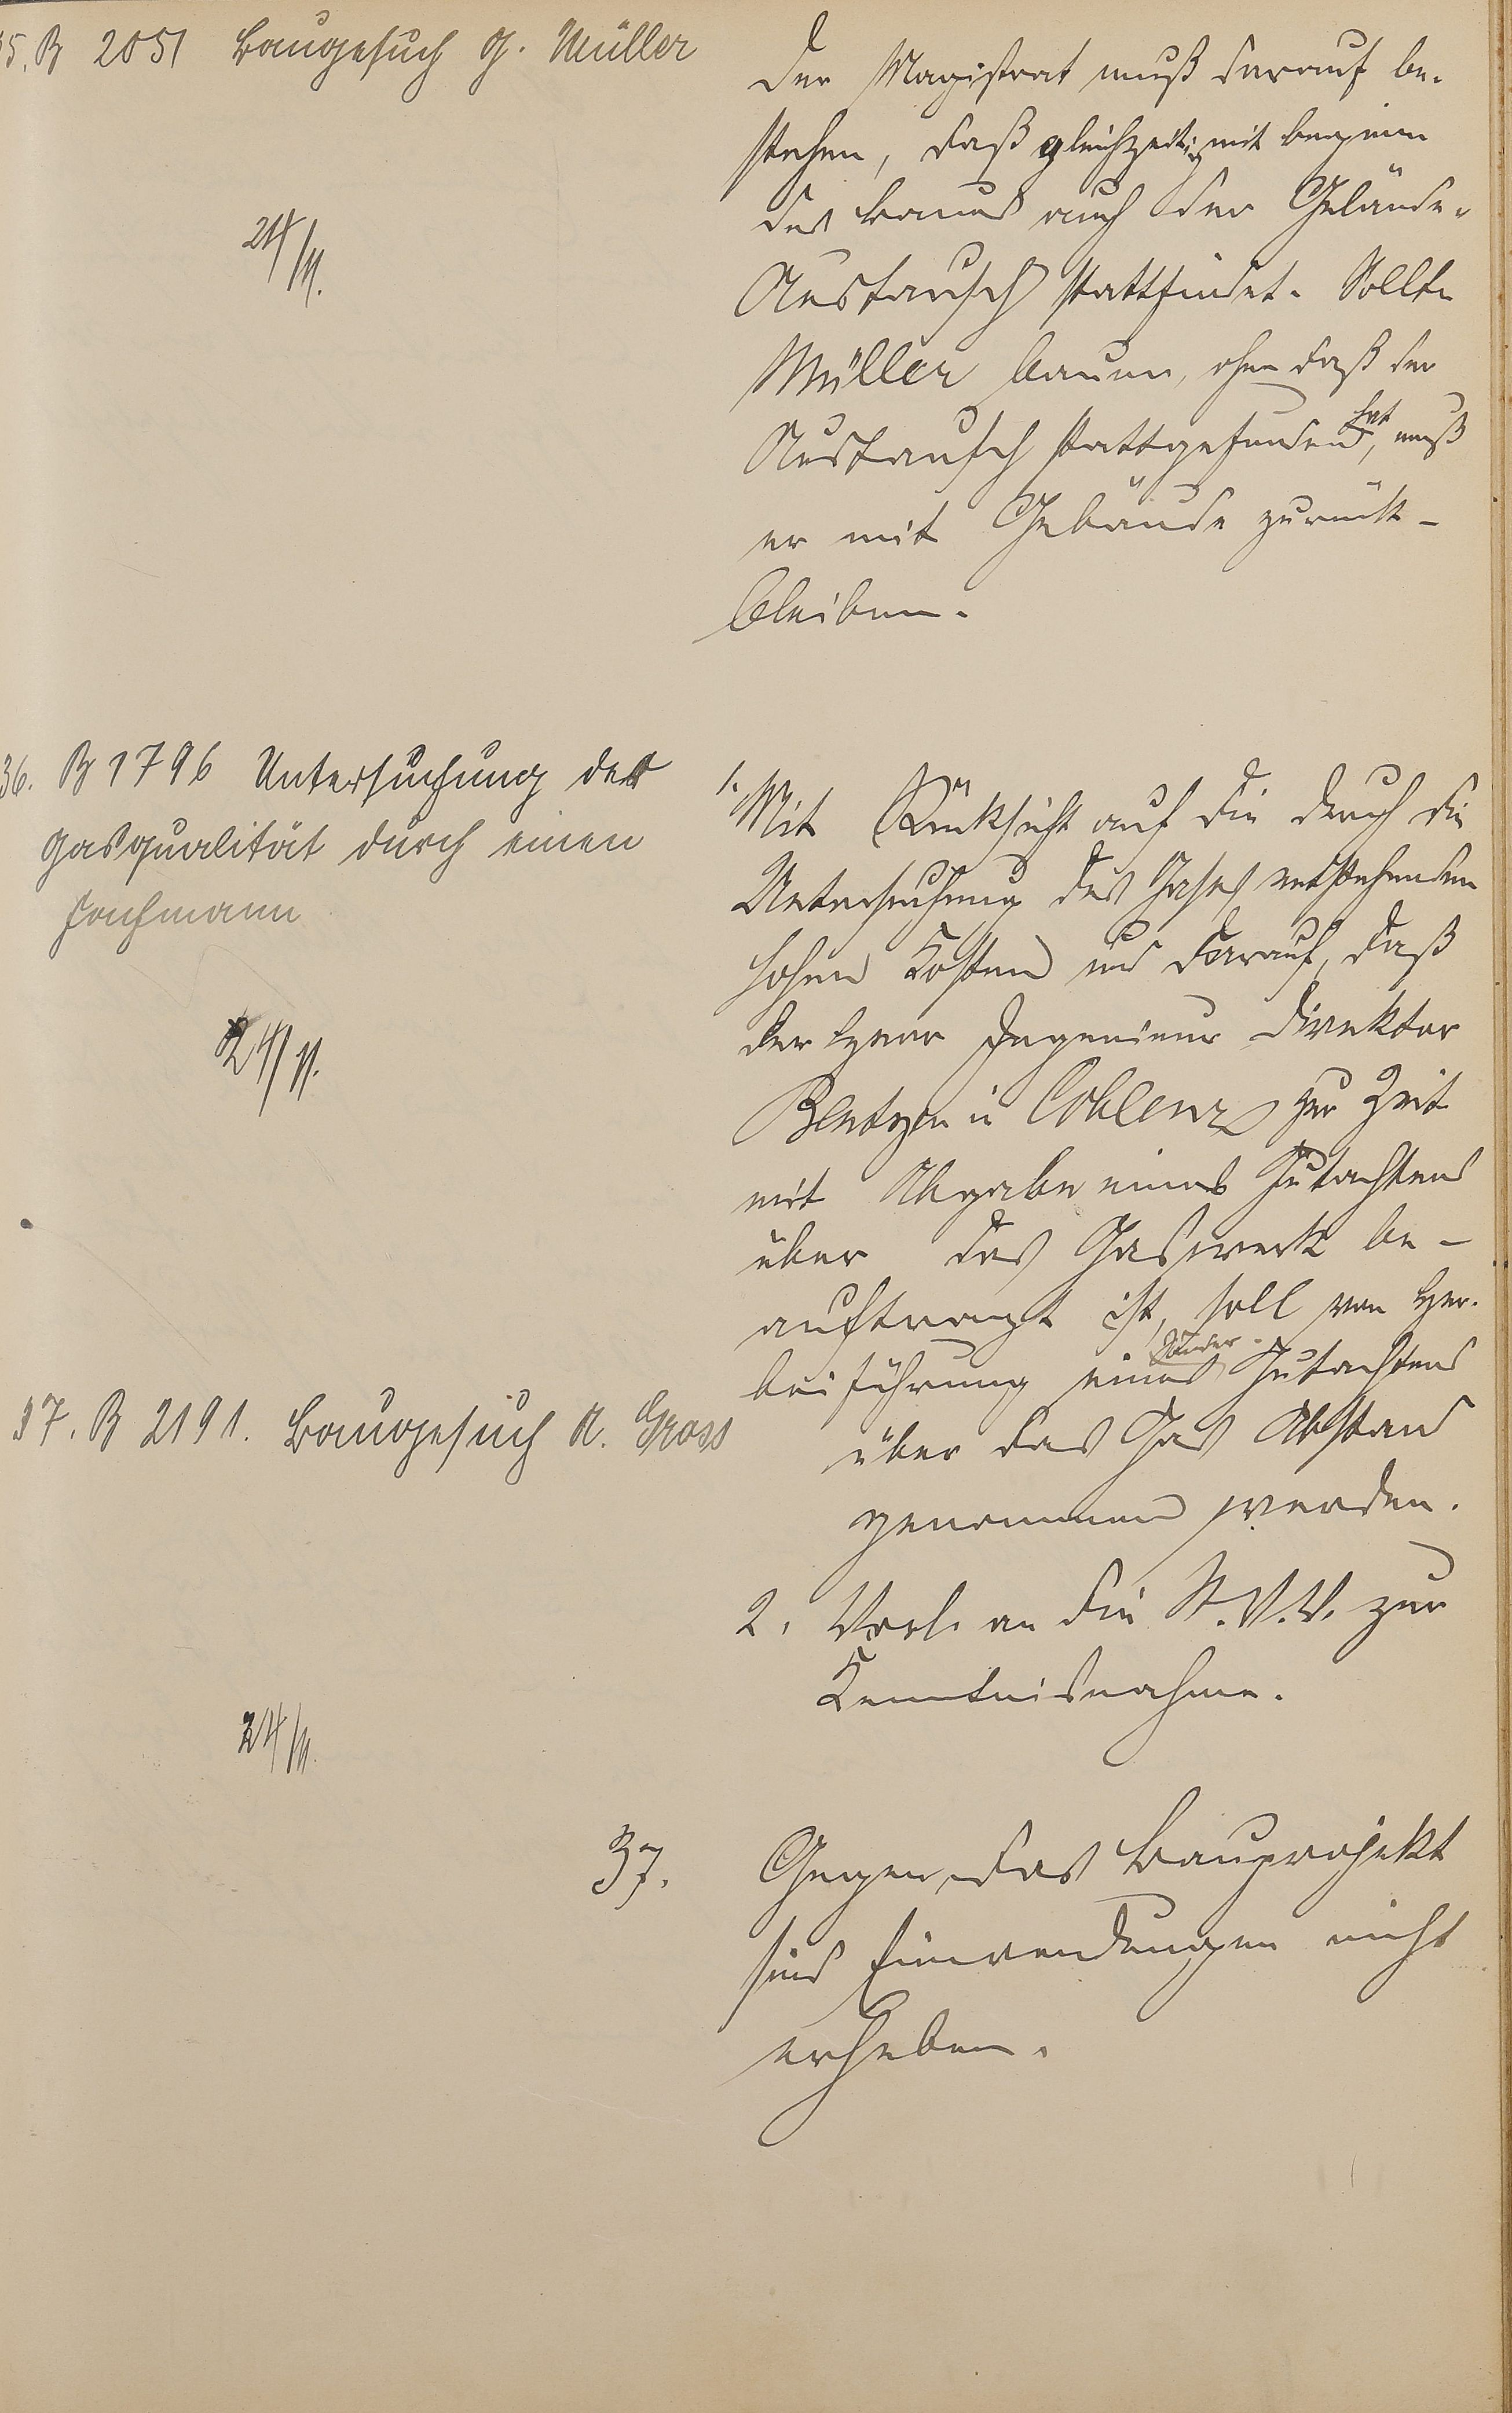 35. B 2051 Baugesuch G. Müller
24/11.
Der Magistrat muß darauf be-
stehen, daß gleichzeitig mit beginn
des Baues auch der Gelände-
Austausch stattfindet. Sollte
Müller bauen, ohne daß der
Austausch stattgefunden hat, muß
er mit Gebäude zurück-
bleiben.
36. B 1796 Untersuchung der
Gasqualität durch einen
Fachmann
24/11.
1. Mit Rücksicht auf die durch die
Untersuchung des Gases entstehenden
hohen Kosten und darauf, daß
der Herr Ingenieur Direktor
in Coblenz zur Zeit
mit Abgabe eines Gutachtens
über das Gaswerk be-
auftragt ist, soll von Her-
beiführung eines Sonder-Gutachtens
über das Gas Abstand
genommen werden.
2. Vorl. an die St.V.V. zur
Kenntnisnahme.
37. B 2191. Baugesuch A. Gross
24/11.
37. Gegen das Bauprojekt
sind Einwendungen nicht
erheben.